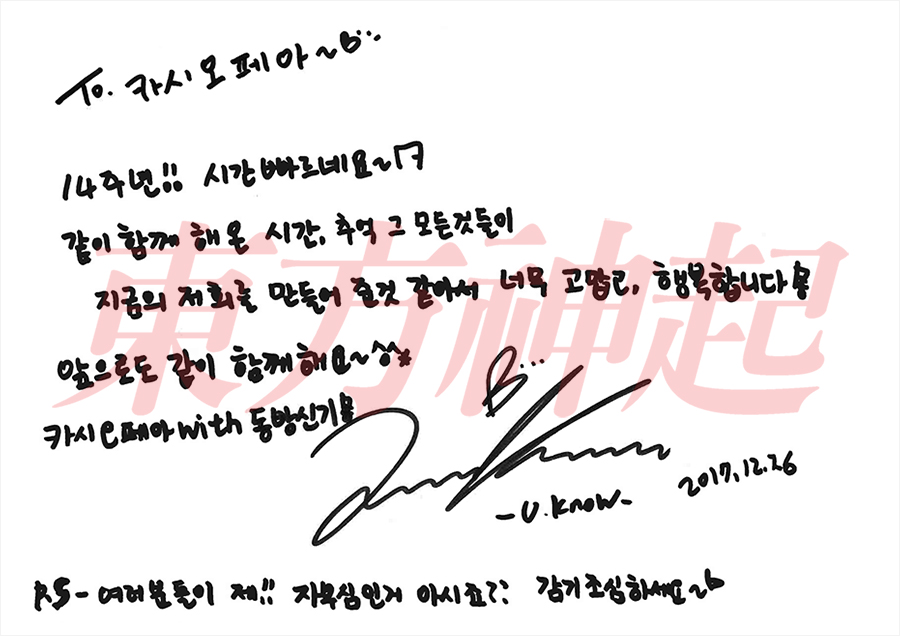 To. 카시오페아~B:·
14주년!! 시간 빠르네요~ㄱ
같이 함께 해 온 시간, 추억 그 모든것들이
지금의 저희를 만들어 준것 같아서 너무 고맙고, 행복합니다
앞으로도 같이 함께해요~^^*
카시오페아 with 동방신기
B...
-U.KnoW-
2017.12.26
P.S - 여러분들이 제!! 자부심인거 아시죠?? 감기조심하세요~b
東方神起